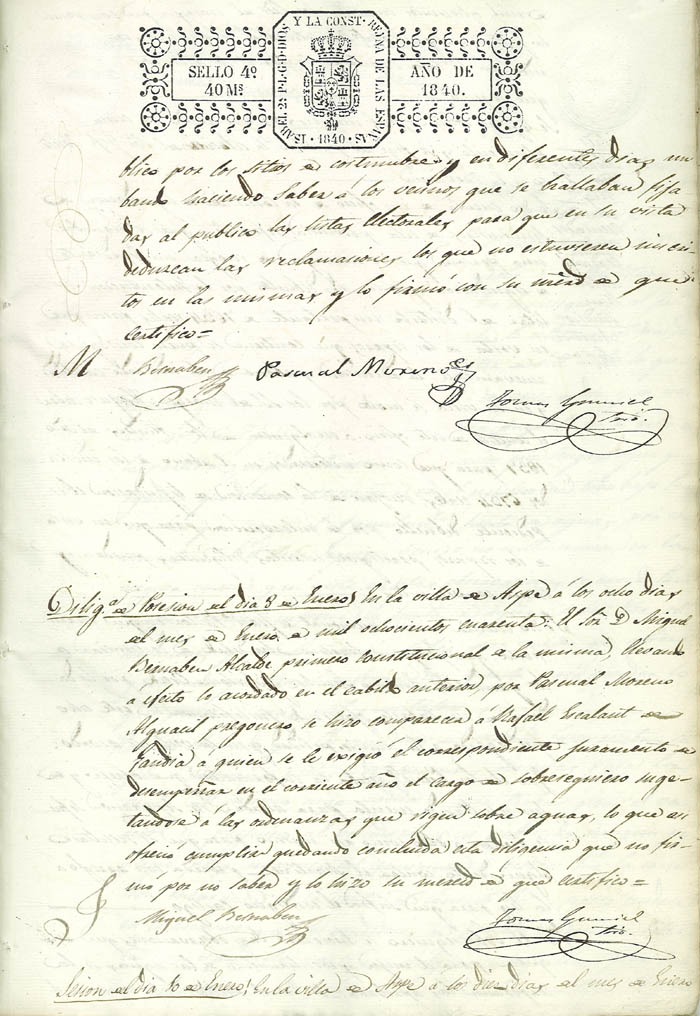 ISABEL 2ª P.L.G.D.DIOS Y LA CONST. REYNA DE LAS ESPAÑAS
· 1840 ·
SELLO 4º
40 Mˢ
AÑO DE
1840.
blico por los sitios de costumbre y en diferentes dias un
bando haciendo saber á los vecinos que se hallaban fija
das al publico las listas electorales para que en su vista
deduzcan las reclamaciones los que no estuviesen inscri-
tos en las mismas y lo firmó con su mered de que
certifico=
M Bernabeu Pascual Moreno
Tomas
Diligª de Posesion del dia 8 de Enero / En la villa de Aspe á los ocho dias
del mes de Enero, de mil ochocientos cuarenta: El Sor. D. Miguel
Bernabeu Alcalde primero Constitucional de la misma, llevando
á efecto lo acordado en el cabildo anterior, por Pascual Moreno
Alguacil pregonero se hizo comparecer á Rafael Escalant de
Gandia á quien se le exigió el correspondiente juramento de
desempeñar en el corriente año el cargo de sobresequiero suge-
tandose á las ordenanzas que rigen sobre aguas, lo que asi
ofreció cumplir quedando concluida esta diligencia que no fir-
mó por no saber y lo hizo su mered de que certifico=
Miguel Bernabeu
Tomas
Sesion del dia 10 de Enero / En la villa de Aspe á los diez dias del mes de Enero